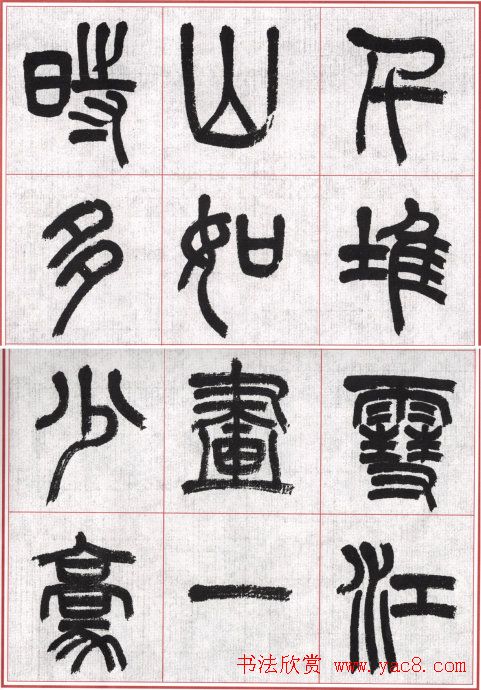 千堆雪江
山如畫一
時多少豪
书法欣赏 www.yac8.com